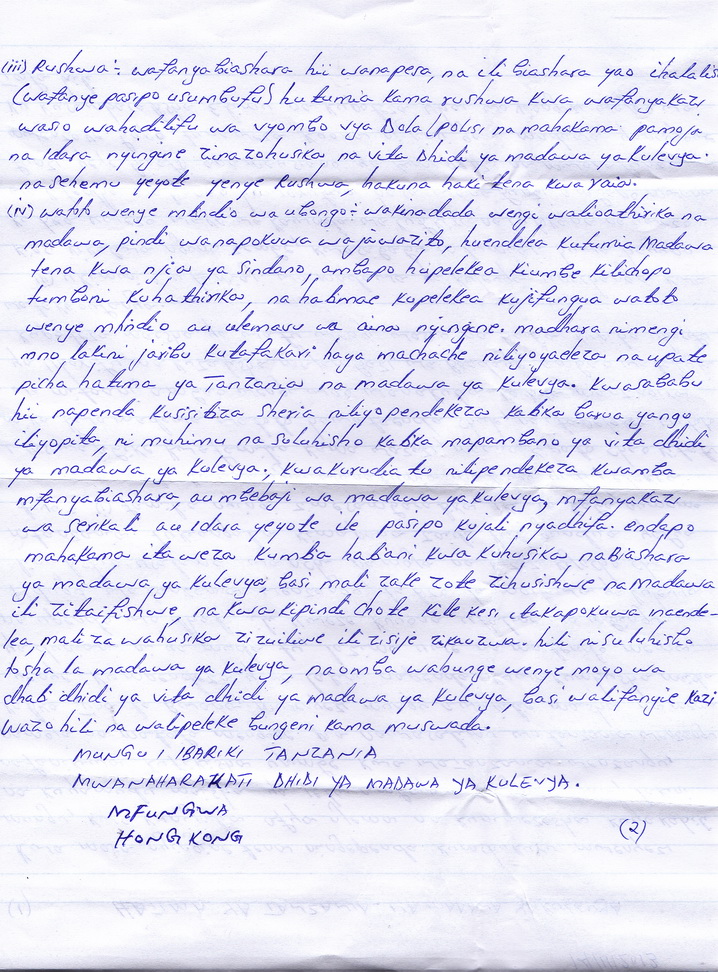 (iii) Rushwa:- wafanyabiashara hii wanapesa, na ili biashara yao ihalalis
(wafanye pasipo usumbufu) hutumia kama rushwa kwa wafanyakazi
wasio wahadilifu wa vyombo vya Dola (polisi na mahakama pamoja
na Idara nyingine zinazohusika, na vita Dhidi ya madawa ya Kulevya.
na sehemu yeyote yenye Rushwa, hakuna haki tena kwa raia.
(iv) watoto wenye mtindio wa ubongo:- wakinadada wengi walioathirika na
madawa, pindi wanapokuwa wajawazito, huendelea Kutumia Madawa
tena Kwa njia ya Sindano, ambapo hupelekea Kiumbe Kilichopo
tumboni Kuhathirika, na hatimae Kupelekea Kujifungua watoto
wenye mtindio au ulemavu wa aina nyingine. madhara nimengi
mno lakini jaribu Kutafakari haya machache niliyoyaeleza na upate
picha hatima ya Tanzania na madawa ya Kulevya. Kwasababu
hii napenda Kusisitiza Sheria niliyopendekeza Katika barua yangu
iliyopita, ni muhimu na suluhisho Katika mapambano ya vita dhidi
ya madawa ya Kulevya., Kwakurudia tu nilipendekeza Kwamba
mfanyabiashara, au mbebaji wa madawa ya Kulevya, mfanyakazi
wa serikali au Idara yeyote ile pasipo Kujali nyadhifa. endapo
mahakama itaweza Kumtia hatiani Kwa Kuhusika na Biashara
ya madawa ya Kulevya, basi mali zake zote zihusishwe na Madawa
ili zitaifishwe, na Kwa Kipindi chote Kile Kesi itakapokuwa inaende-
lea, mali za wahusika zizuiliwe ili zisije zikauzwa. hili ni suluhisho
tosha la madawa ya Kulevya, naomba wabunge wenye moyo wa
dhati dhidi ya vita dhidi ya madawa ya Kulevya, basi walifanyie Kazi
wazo hili na walipeleke bungeni Kama muswada.
MUNGU IBARIKI TANZANIA
MWANAHARAKATI DHIDI YA MADAWA YA KULEVYA.
MFUNGWA
HONG KONG
(2)